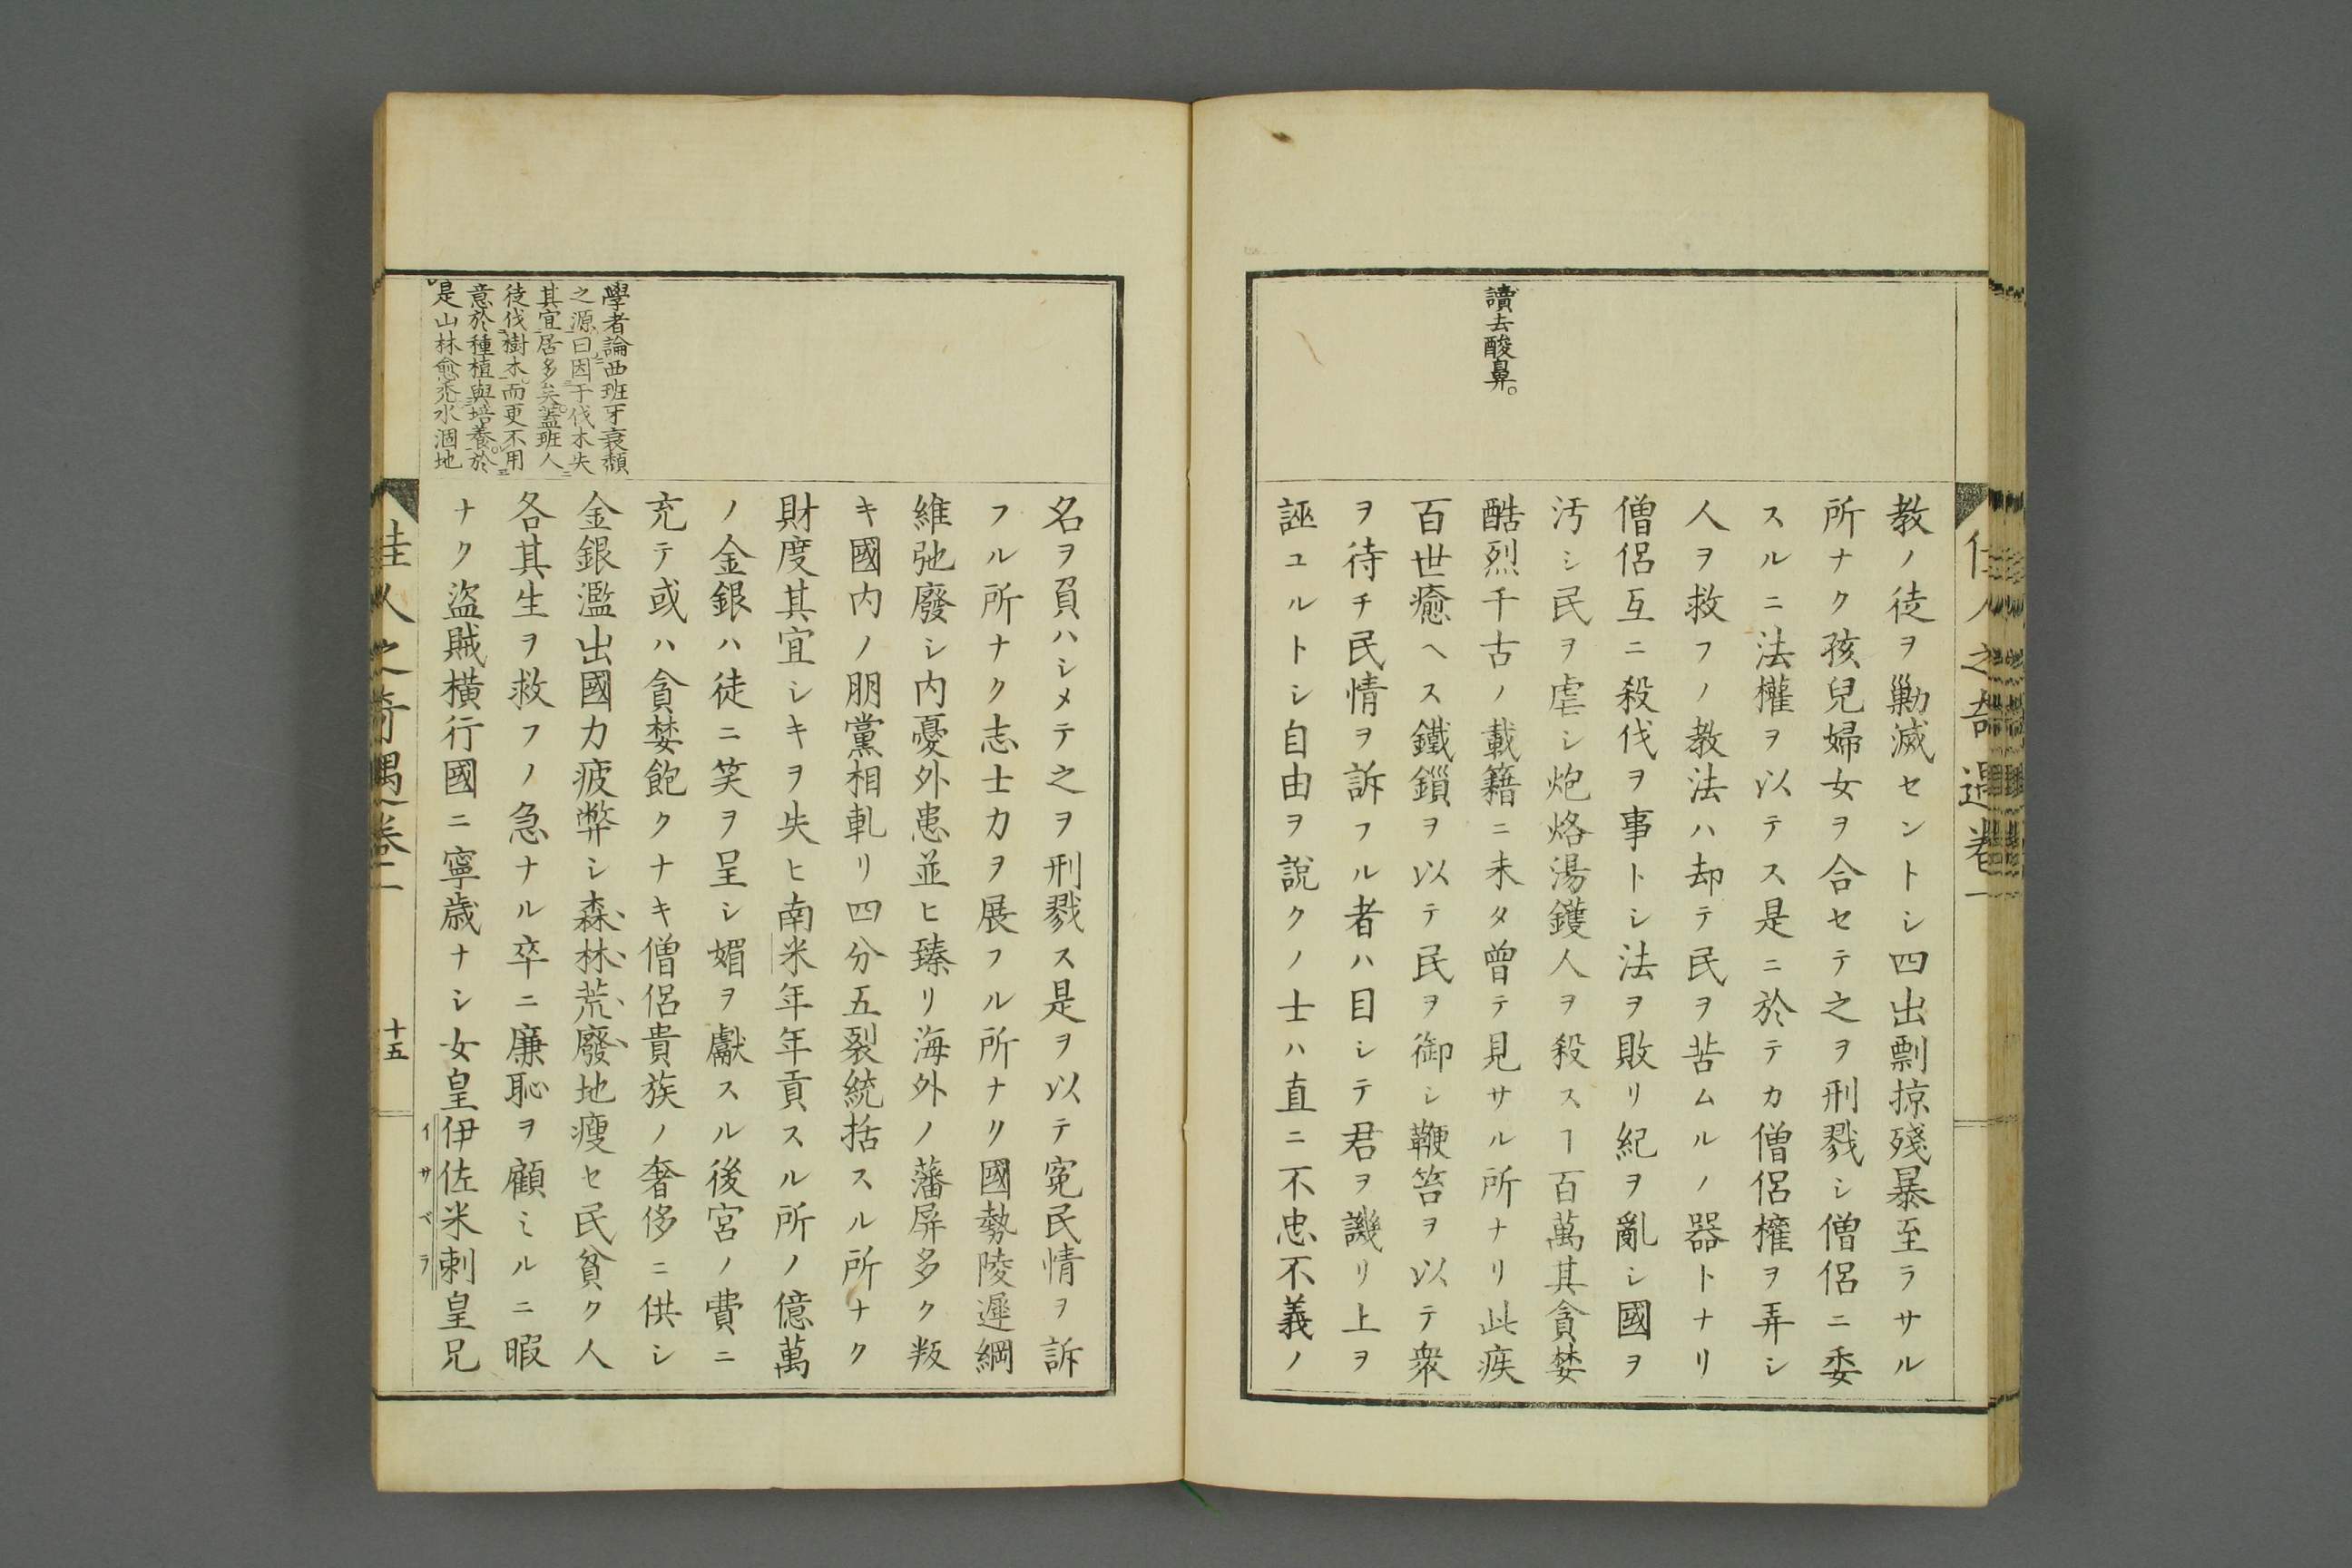 佳人之奇遇卷一
讀去酸鼻。
教ノ徒ヲ勦滅セントシ四出剽掠殘暴至ラサル
所ナク孩兒婦女ヲ合セテ之ヲ刑戮シ僧侶ニ委
スルニ法權ヲ以テス是ニ於テカ僧侶權ヲ弄シ
人ヲ救フノ教法ハ却テ民ヲ苦ムルノ器トナリ
僧侶互ニ殺伐ヲ事トシ法ヲ敗リ紀ヲ亂シ國ヲ
汚シ民ヲ虐シ炮烙湯鑊人ヲ殺スヿ百萬其貪婪
酷烈千古ノ載籍ニ未タ曾テ見サル所ナリ此疾
百世癒ヘス鐵鎖ヲ以テ民ヲ御シ鞭笞ヲ以テ衆
ヲ待チ民情ヲ訴フル者ハ目シテ君ヲ譏リ上ヲ
誣ユルトシ自由ヲ說クノ士ハ直ニ不忠不義ノ
學者論西班牙衰頽
之源曰因于伐木失
其宜居多矣。蓋班人
徒伐樹木而更不用
意於種植與培養。於
是山林愈禿水涸地
名ヲ負ハシメテ之ヲ刑戮ス是ヲ以テ寃民情ヲ訴
フル所ナク志士力ヲ展フル所ナク國勢陵遲綱
維弛廢シ内憂外患並ヒ臻リ海外ノ藩屏多ク叛
キ國内ノ朋黨相軋リ四分五裂統括スル所ナク
財度其宜シキヲ失ヒ南米年年貢スル所ノ億萬
ノ金銀ハ徒ニ笑ヲ呈シ媚ヲ獻スル後宮ノ費ニ
充テ或ハ貪婪飽クナキ僧侶貴族ノ奢侈ニ供シ
金銀濫出國力疲弊シ森林荒廢地瘦セ民貧ク人
各其生ヲ救フノ急ナル卒ニ廉恥ヲ顧ミルニ暇
ナク盜賊橫行國ニ寧歲ナシ女皇伊佐米剌皇兄
イサベラ
佳人之奇遇卷一
十五